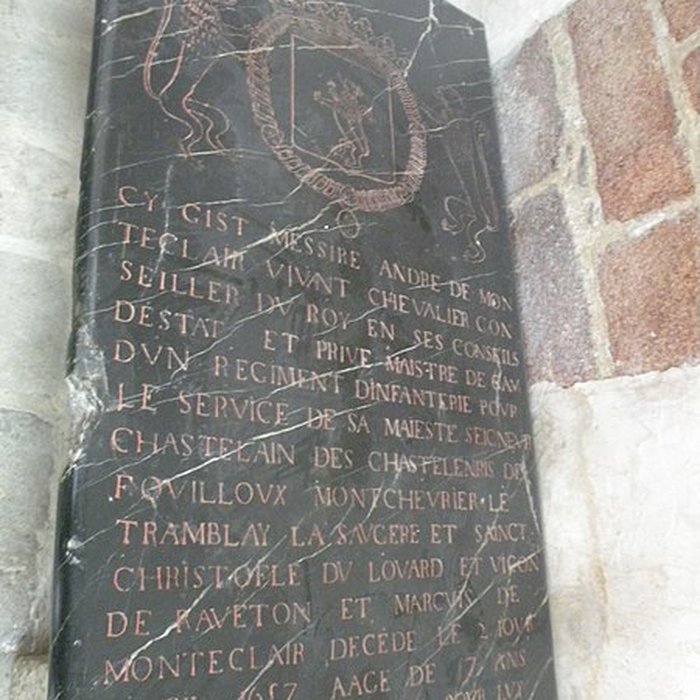 CY GIST MESSIRE ANDRE DE MON
TECLAIR VIVANT CHEVALIER CON
SEILLER DU ROY EN SES CONSEILS
DESTAT ET PRIVE MAISTRE DE CAM
DVN REGIMENT DINFANTERIE POVR
LE SERVICE DE SA MAIESTE SEIGNEVR
CHASTELAIN DES CHASTELENIES DE
ROVILLOVX MONTCHEVRIER LE
TRAMBLAY LA SAVGERE ET SAINCT
CHRISTOFLE DV LOVARD ET VIÇON
DE RAVETON ET MARCVIS DE
MONTECLAIR DECEDE LE 2 IOVR
1657 AAGE DE 17 ANS